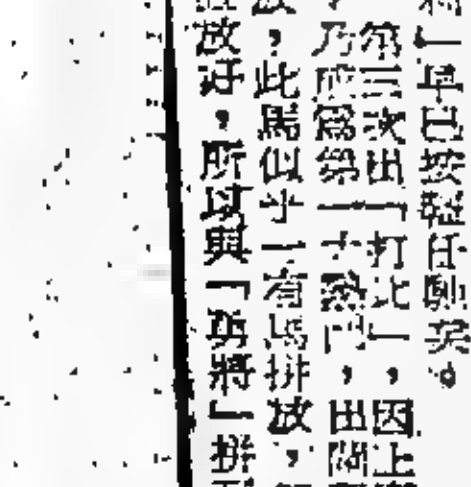 」早已按任
第三次出「打比」，因上
，乃成為第一大熱門，出閘
，此馬似乎一有馬拼放，
放好，所以與「勇將」拼